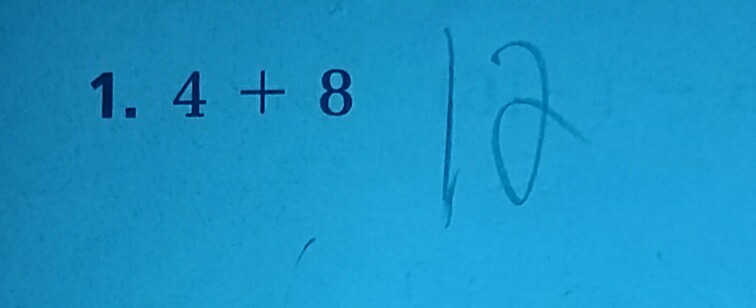 1. 4 + 8 12